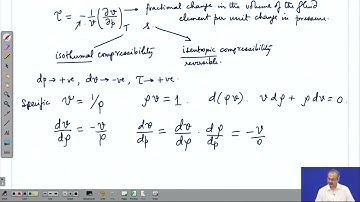 τ = -1/v (∂v/∂p)T → fractional change in the volume of the fluid
s element per unit change in pressure.
isothermal compressibility isentropic compressibility
reversible.
dp → +ve, dv → -ve, τ → +ve.
Specific v = 1/ρ ρv = 1. d(ρv) v dρ + ρ dv = 0.
dv/dρ = -v/ρ dv/dp = dv/dρ · dρ/dp = -v/ρ